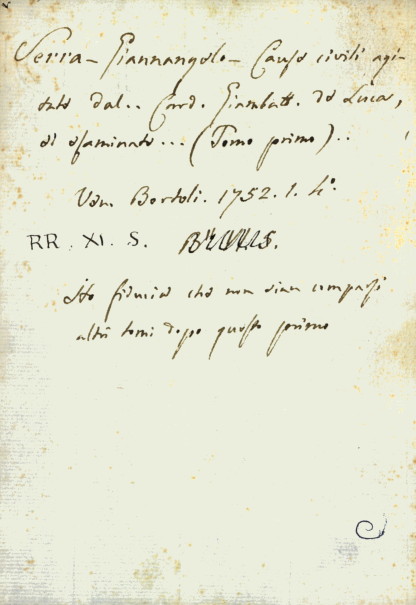 Serra – Giannangelo – Cause civili agi-
tate dal.. Card. Giambatt. de Luca,
ed esaminate... (Tomo primo)..
Ven. Bortoli. 1752. 1. 4°.
RR. XI. S.
Ho fiducia che non sian comparsi
altri tomi dopo questo primo